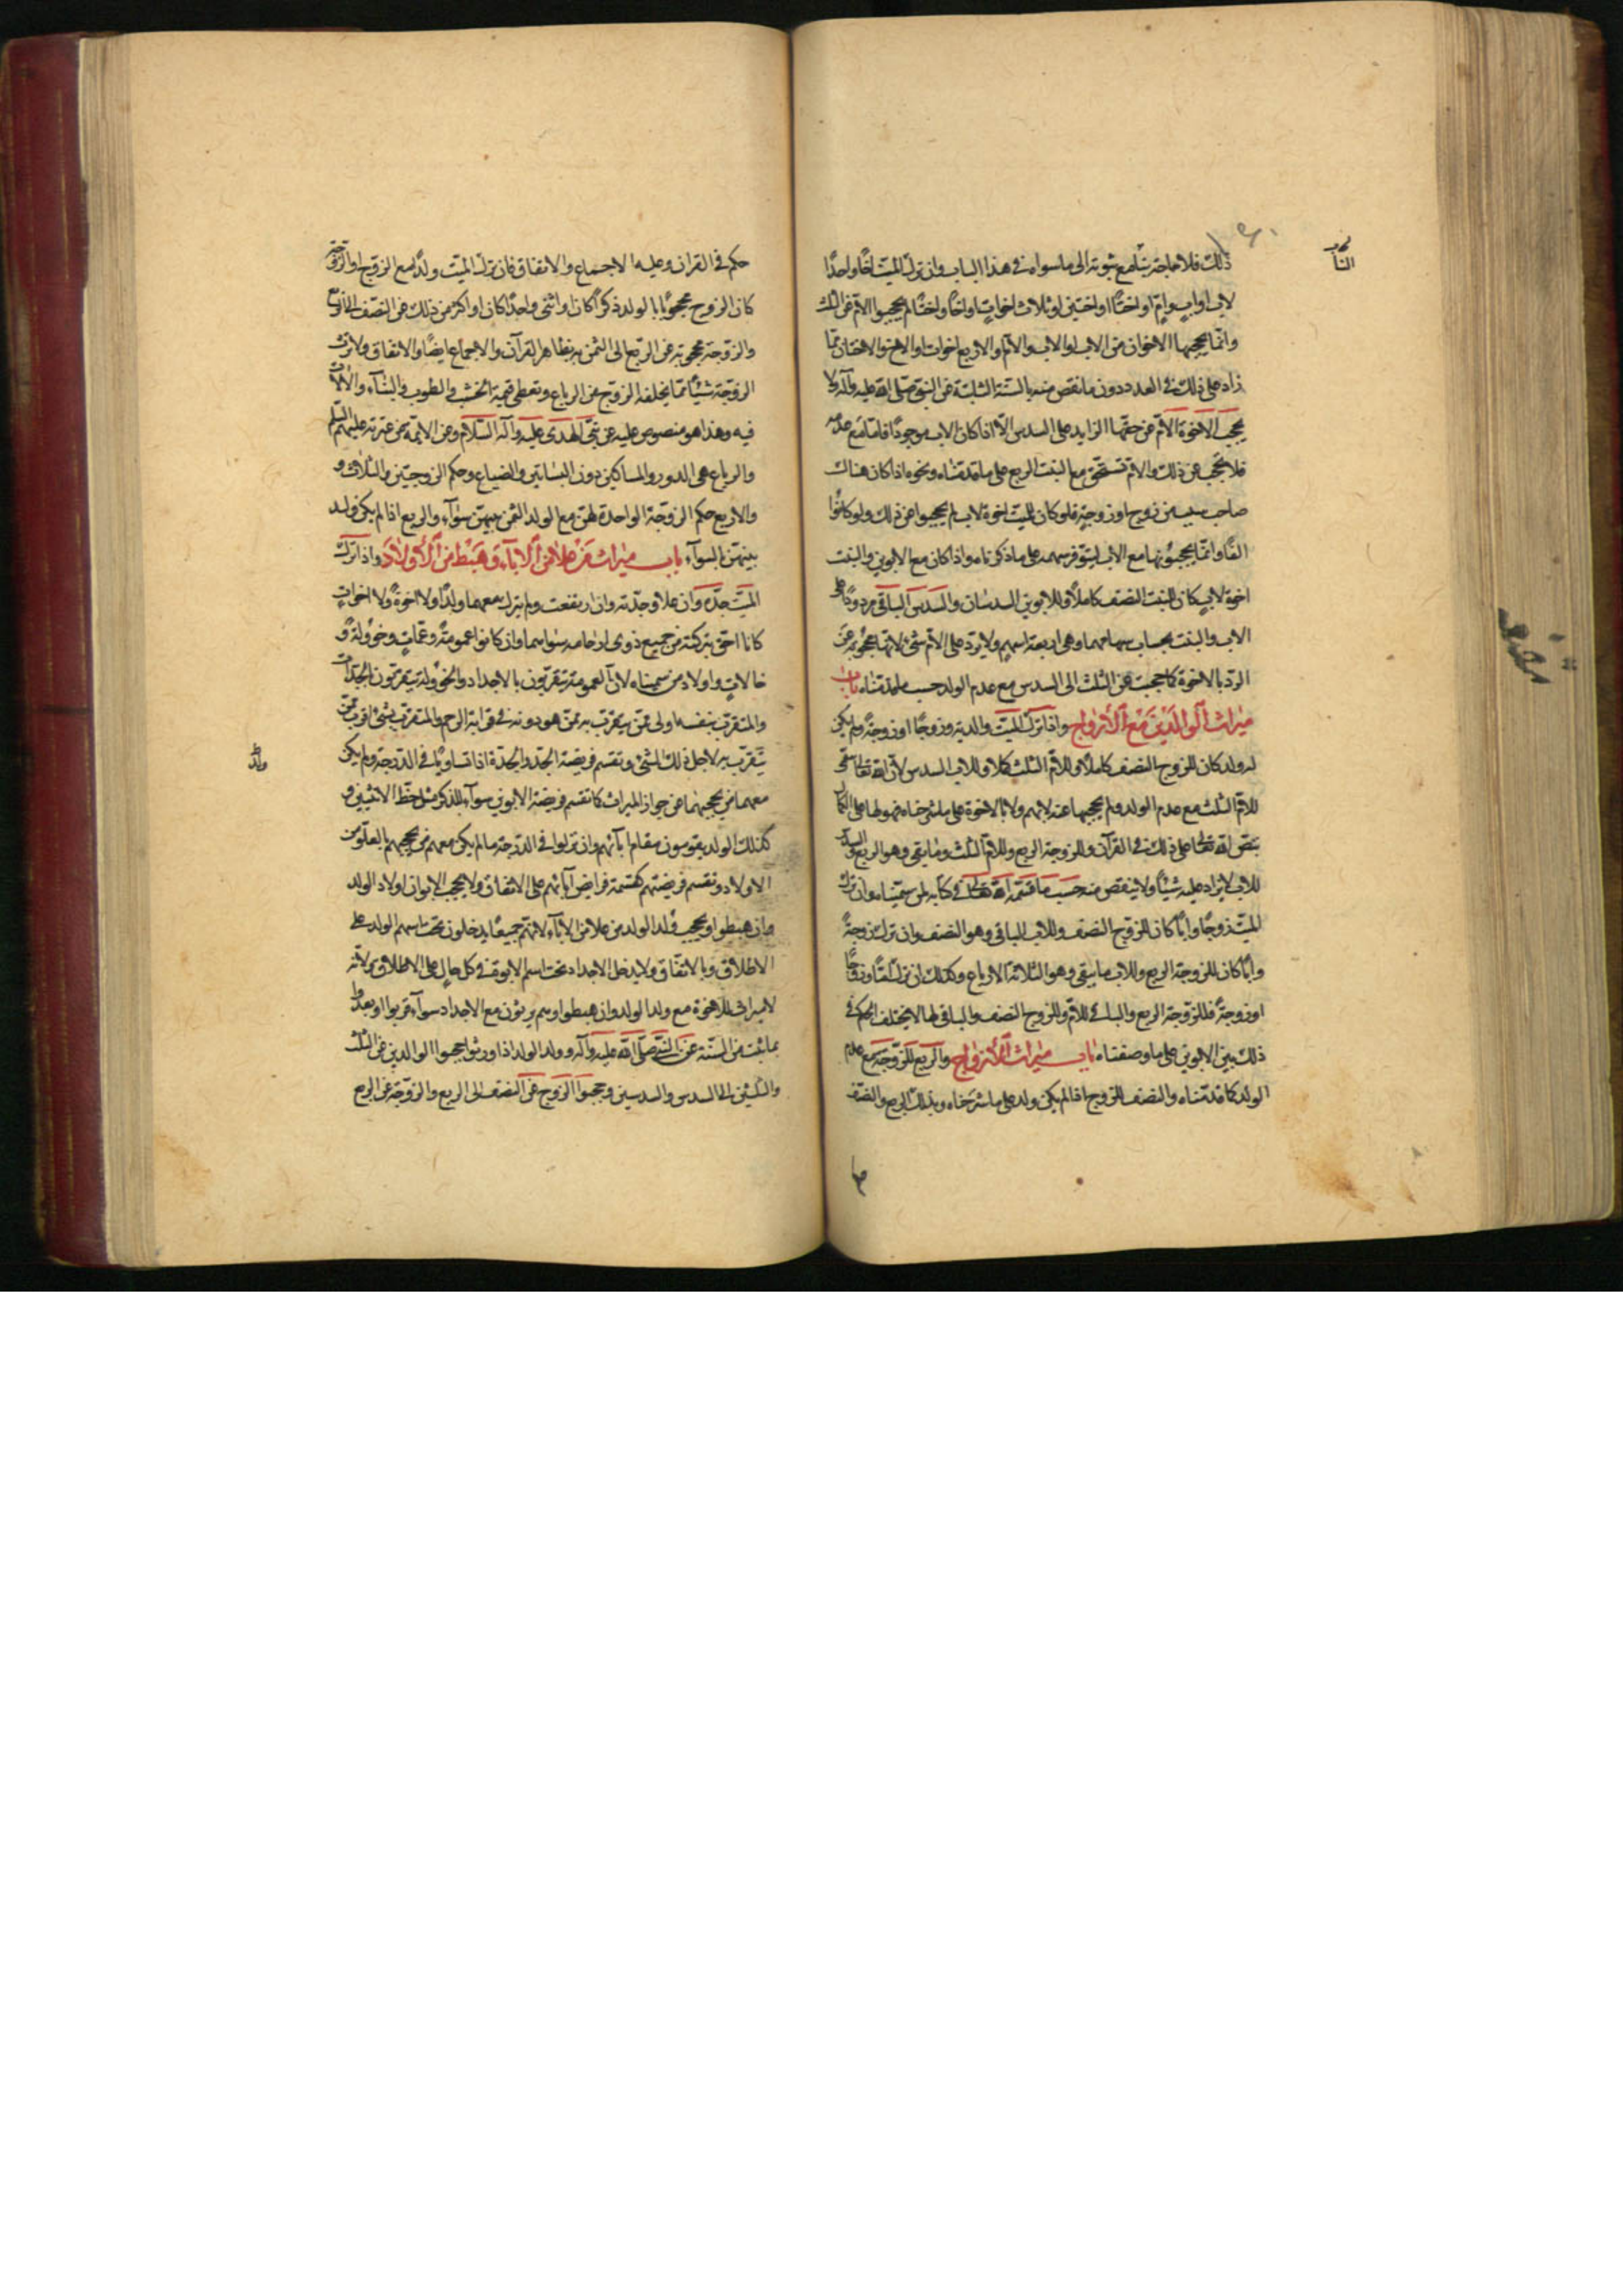 ذلك فلا حاجة بنا مع ثبوته الى ما سواه في هذا الباب وان ترك الميت اخا واحدا
لاب او اب وام او اختا او اختين او ثلاث اخوات او اخا واختا لم يحجبوا الام عن الثلث
وانما يحجبها الاخوان من الاب او الاب والام والاربع اخوات او الاخ والاختان فما
زاد على ذلك في العدد دون ما نقص منه بالسنة الثابتة عن النبي صلى الله عليه وآله ولا
يحجب الاخوة الام عن حقها الزايد على السدس الا اذا كان الاب موجودا فاما مع عدمه
فلا تحجب عن ذلك والام تستحق مع البنت الربع على ما قدمناه ونحوه اذا كان هناك
صاحب من زوج او زوجة فلو كان للميت اخوة لاب لم يحجبوا عن ذلك ولو كانوا
الفا وانما يحجبونها مع الاب ليتوفر سهمه على ما ذكرناه واذا كان مع الابوين والبنت
اخوة لاب كان للبنت النصف كاملا وللابوين السدسان والسدس الباقي مردودا على
الاب والبنت بحساب سهامهما وهي اربعة اسهم ولا يرد على الام شئ لانها محجوبة عن
الرد بالاخوة كما حجبت عن الثلث الى السدس مع عدم الولد حسب ما قدمناه باب
ميراث الوالدين مع الازواج واذا ترك الميت والديه وزوجا او زوجة ولم يكن
له ولد كان للزوج النصف كاملا وللام الثلث كملا وللاب السدس لان الله تعالى سمى
للام الثلث مع عدم الولد ولم يحجبها عنه بالاخوة على ما شرحناه
بنص الله تعالى على ذلك في القرآن وللزوجة الربع وللام الثلث وما يبقى وهو الربع والسدس
للاب لا يزاد عليه شيئا ولا ينقص منه حسب ما قسمه الله تعالى في كتابه لمن سميناه وان ترك
الميت زوجا وابا كان للزوج النصف وللاب الباقي وهو النصف وان ترك زوجة
وابا كان للزوجة الربع وللاب ما يبقى وهو الثلاثة الارباع وكذلك ان ترك اما وزوجا
او زوجة فللزوجة الربع والباقي للام وللزوج النصف والباقي لها لا يختلف الحكم في
ذلك بين الابوين على ما وصفناه باب ميراث الازواج والربع للزوجة مع عدم
الولد كما قدمناه والنصف للزوج اذا لم يكن ولد على ما شرحناه وبذلك الربع والنصف
حكم في القران وعليه الاجماع والاتفاق فان ترك الميت ولدا مع الزوج او الزوجة
كان الزوج محجوبا بالولد ذكرا كان او انثى واحدا كان او اكثر من ذلك عن النصف الى الربع
والزوجة محجوبة عن الربع الى الثمن به بظاهر القرآن والاجماع ايضا والاتفاق ولا ترث
الزوجة شيئا مما يخلفه الزوج من الرباع وتعطى قيمة الخشب والطوب والبناء والآلات
فيه وهذا هو منصوص عليه عن نبي الهدى عليه وآله السلام وعن الائمة من عترته عليهم السلم
والرباع هي الدور والمساكن دون البساتين والضياع وحكم الزوجتين والثلاث و
والاربع حكم الزوجة الواحدة لهن مع الولد الثمن بينهن سوآء والربع اذا لم يكن ولد
بينهن بالسوآء باب ميراث من علا من الآباء وهبط من الاولاد واذا ترك
الميت جده وان علا وجدته وان ارتفعت ولم يترك معهما ولدا ولا اخوة ولا اخوات
كانا احق بتركته من جميع ذوي ارحامه سواهما وان كانوا عمومة وعمات وخؤولة و
خالات واولاد من سميناه لان العمومة يتقربون بالاجداد والخؤولة يتقربون بالجدات
والمتقرب بنفسه اولى ممن يتقرب به ممن هو دونه في قرابة الرحم والمتقرب بشئ اقرب ممن
يتقرب به لاجل ذلك الشئ وتقسم فريضة الجد والجدة اذا تساويا في الدرجة ولم يكن
معهما من يحجبهما عن جواز الميراث كما تقسم فريضة الابوين سوآء للذكر مثل حظ الانثيين و
كذلك الولد يقومون مقام آبآئهم وان نزلوا في الدرجة ما لم يكن معهم من يحجبهم بالعلو من
الاولاد وتقسم فريضتهم كقسمة فرايض آبائهم على الاتفاق ولا يحجب الابوان اولاد الولد
وان هبطوا ويحجب ولد الولد من علا من الآباء لانهم جميعا يدخلون تحت اسم الولد على
الاطلاق وبالاتفاق ولا يدخل الاجداد تحت اسم الابوة في كل حال على الاطلاق ولانه
لا ميراث للاخوة مع ولد الولد وان هبطوا وهم يرثون مع الاجداد سوآء قربوا او بعدوا
بما ثبت من السنة عن النبي صلى الله عليه وآله وولد الولد اذا ورثوا حجبوا الوالدين عن الثلث
والثلثين الى السدس والسدسين وحجبوا الزوج عن النصف الى الربع والزوجة عن الربع